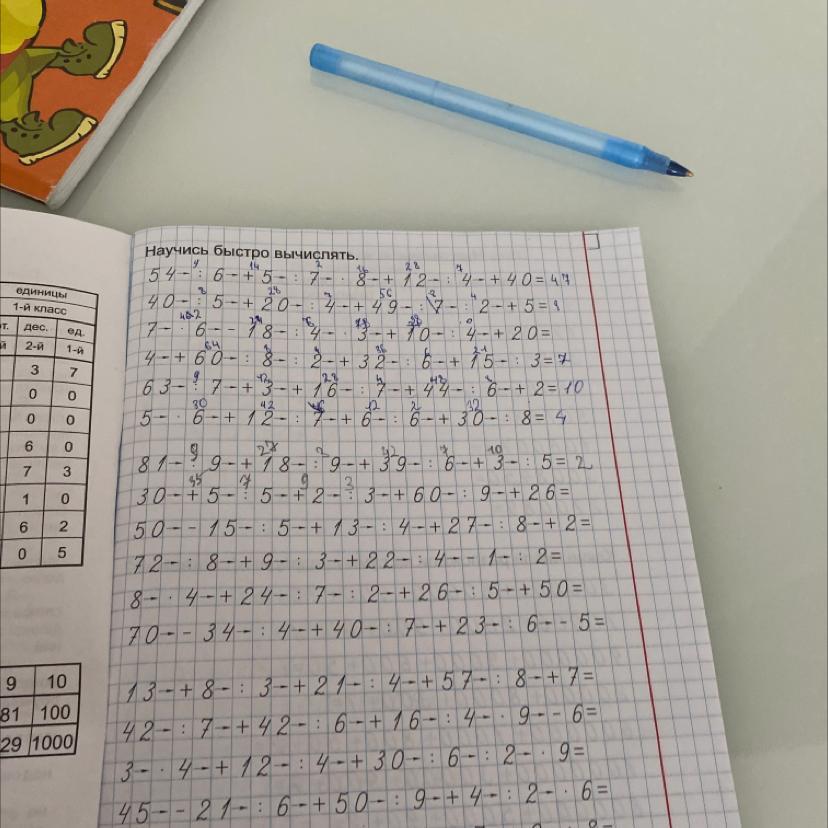 Научись быстро вычислять.
54-:6-+5-:7-·8-+12-:4-+40=47
40-:5-+20-:4-+49-:7-:2-+5=9
7-·6--18-:4-·3-+10-:4-+20=
4-+60-:8-:2-+32-:6-+15-:3=7
63-:7-+3-+16-:7-+44-:6-+2=10
5-·6-+12-:7-+6-:6-+30-:8=4
81-:9-+18-:9-+39-:6-+3-:5=2
30-+5-:5-+2-:3-+60-:9-+26=
50--15-:5-+13-:4-+27-:8-+2=
72-:8-+9-:3-+22-:4--1-:2=
8-·4-+24-:7-:2-+26-:5-+50=
70--34-:4-+40-:7-+23-:6--5=
13-+8-:3-+21-:4-+57-:8-+7=
42-:7-+42-:6-+16-:4-·9--6=
3-·4-+12-:4-+30-:6-:2-·9=
45--21-:6-+50-:9-+4-:2-·6=
единицы
1-й класс
дес. ед.
2-й 1-й
3 7
0 0
0 0
6 0
7 3
1 0
6 2
0 5
9 10
81 100
29 1000